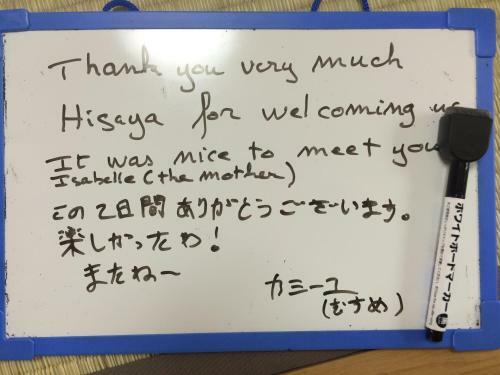 Thank you very much
Hisaya for welcoming us
It was nice to meet you
Isabelle (the mother)
この2日間ありがとうございます。
楽しかったわ!
またね〜
カミーユ
(むすめ)
ホワイトボードマーカー